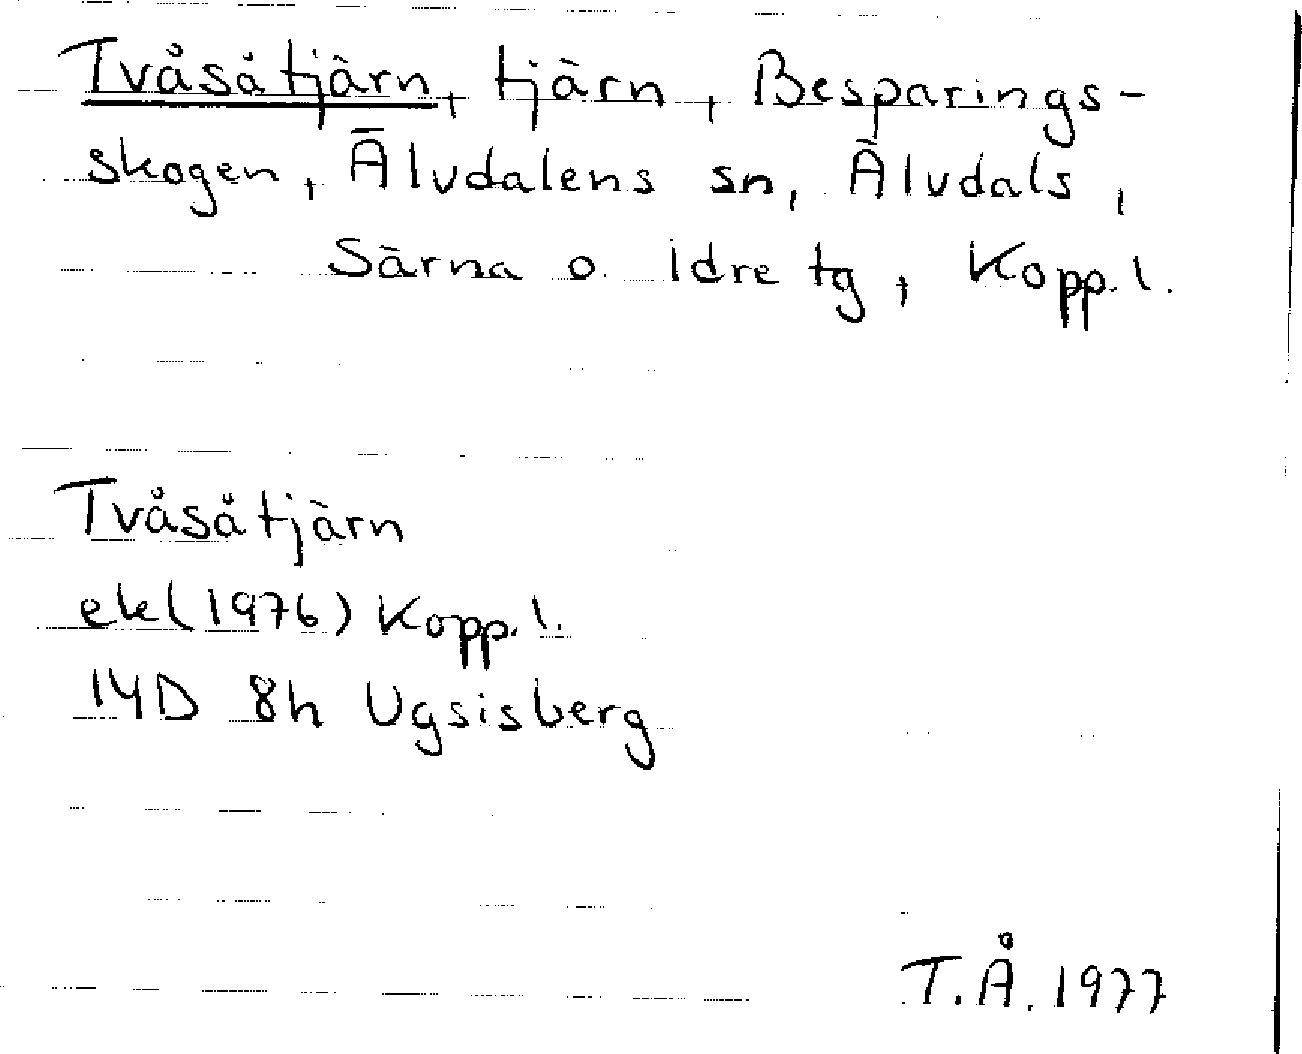 Tvåsåtjärn, tjärn, Besparings-
skogen, Älvdalens sn, Älvdals,
Särna o. Idre tg, Kopp. l.
Tvåsåtjärn
ek (1976) Kopp. l.
14D 8h Ugsisberg
T.Å. 1977